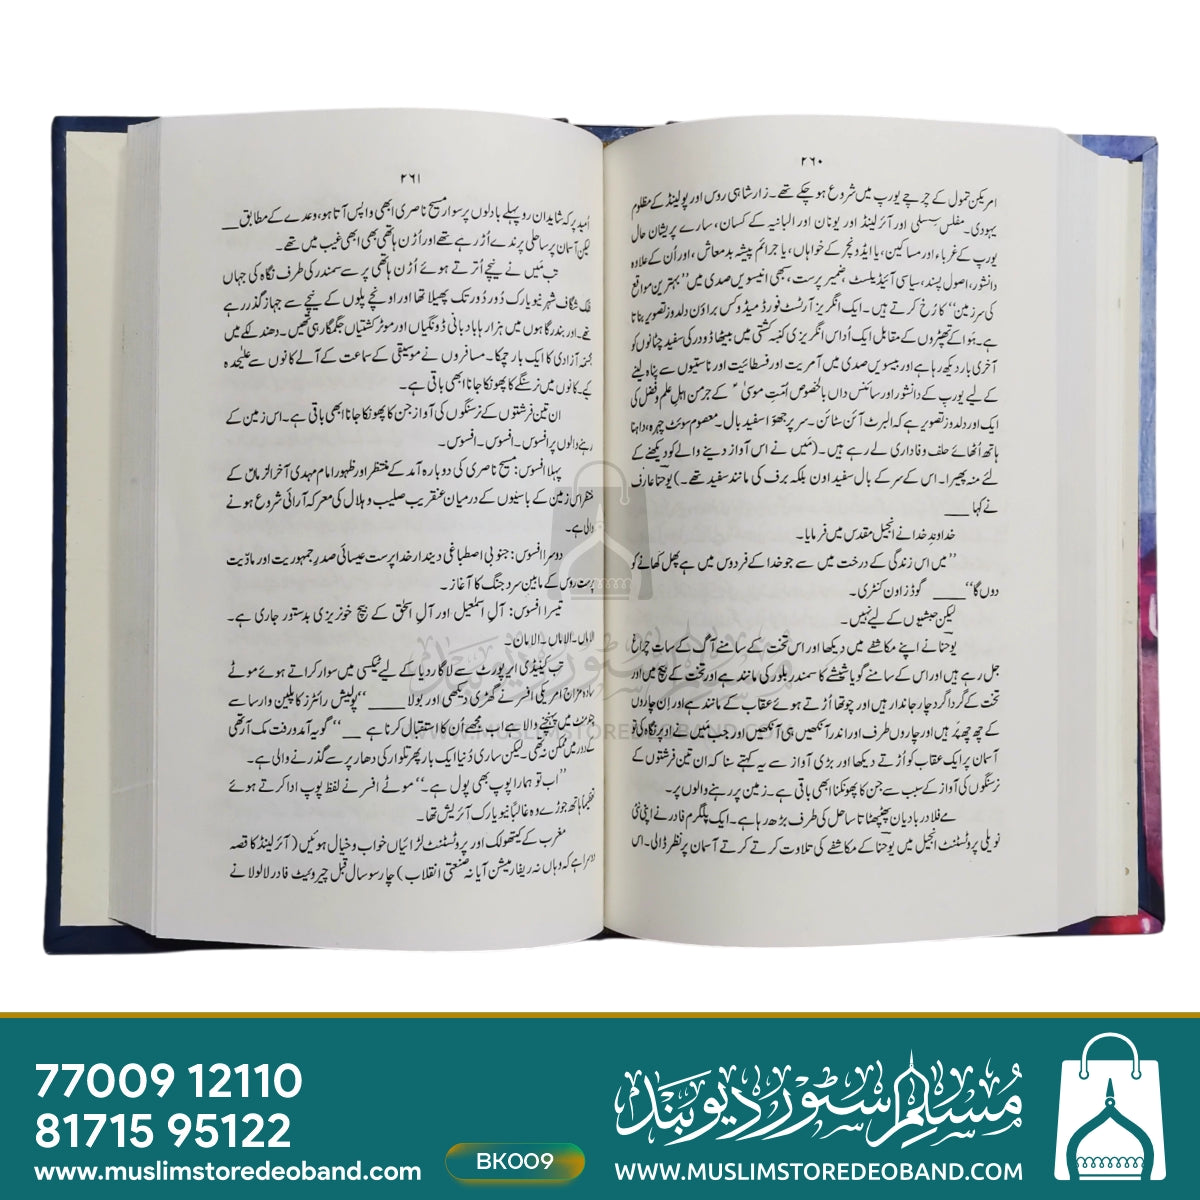 ۲۶۰
امریکن تمول کے چرچے یورپ میں شروع ہو چکے تھے۔ زار شاہی روس اور پولینڈ کے مظلوم
یہودی۔ مفلس سسلی اور آئرلینڈ اور یونان اور البانیہ کے کسان، سارے پریشان حال
یورپ کے غرباء اور مساکین، یا ایڈونچر کے خواہاں، یا جرائم پیشہ بدمعاش، اور اُن کے علاوہ
دانشور، اصول پسند، سیاسی آئیڈیلسٹ، ضمیر پرست، سبھی انیسویں صدی میں ”بہترین مواقع
کی سرزمین“ کا رُخ کرتے ہیں۔ ایک انگریز آرٹسٹ فورڈ میڈوکس براؤن دلدوز تصویر بناتا
ہے۔ ہَوا کے تھپیڑوں کے مقابل ایک اُداس انگریزی کنبہ کشتی میں بیٹھا ڈوور کی سفید چٹانوں کو
آخری بار دیکھ رہا ہے اور بیسویں صدی میں آمریت اور فسطائیت اور ناتسیوں سے پناہ لینے
کے لیے یورپ کے دانشور اور سائنس داں بالخصوص اُمتِ موسیٰ ؑ کے جرمن اہلِ علم و فضل کی
ایک اور دلدوز تصویر ہے کہ البرٹ آئن سٹائن۔ سر پر جھوّا سفید بال۔ معصوم سوئٹ چہرہ، داہنا
ہاتھ اُٹھائے حلف وفاداری لے رہے ہیں۔ (مَیں نے اس آواز دینے والے کو دیکھنے کے
لئے منہ پھیرا۔ اس کے سر کے بال سفید اون بلکہ برف کی مانند سفید تھے۔) یوحنا عارف
نے کہا ___
خداوند خدا نے انجیل مقدس میں فرمایا۔
”میں اس زندگی کے درخت میں سے جو خدا کے فردوس میں ہے پھل کھانے کو
دوں گا“ ___ گوڈز اون کنٹری۔
لیکن حبشیوں کے لیے نہیں۔
یوحنا نے اپنے مکاشفے میں دیکھا اور اس تخت کے سامنے آگ کے سات چراغ
جل رہے ہیں اور اس کے سامنے گویا شیشے کا سمندر بلور کی مانند ہے اور تخت کے بیچ میں اور
تخت کے گرداگرد چار جاندار ہیں اور چوتھا اُڑتے ہوئے عقاب کے مانند ہے اور اِن چاروں
کے چھ چھ پَر ہیں اور چاروں طرف اور اندر آنکھیں ہی آنکھیں اور جب مَیں نے اوپر نگاہ کی تو
آسمان پر ایک عقاب کو اُڑتے دیکھا اور بڑی آواز سے یہ کہتے سنا کہ ان تین فرشتوں کے
نرسنگوں کی آواز کے سبب سے جن کا پھونکنا ابھی باقی ہے۔ زمین پر رہنے والوں پر۔
مے فلاور بادبان پھٹپھٹاتا ساحل کی طرف بڑھ رہا ہے۔ ایک پلگرم فادر نے اپنی نئی
نویلی پروٹسٹنٹ انجیل میں یوحنا کے مکاشفے کی تلاوت کرتے کرتے آسمان پر نظر ڈالی۔ اس
۲۶۱
اُمید پر کہ شاید ان روپہلے بادلوں پر سوار مسیح ناصری ابھی واپس آتا ہو، وعدے کے مطابق ___
لیکن آسمان پر ساحلی پرندے اُڑ رہے تھے اور اُڑن ہاتھی بھی ابھی غیب میں تھے۔
تب مَیں نے نیچے اُترتے ہوئے اُڑن ہاتھی پر سے سمندر کی طرف نگاہ کی جہاں
فلک شگاف شہر نیویارک دُور دُور تک پھیلا تھا اور اونچے پلوں کے نیچے سے جہاز گذر رہے
تھے۔ اور بندرگاہوں میں ہزارہا بادبانی ڈونگیاں اور موٹر کشتیاں جگمگا رہی تھیں۔ دھندلکے میں
مجسمہ آزادی کا ایک بار چمکا۔ مسافروں نے موسیقی کے سماعت کے آلے کانوں سے علیٰحدہ
کیے۔ کانوں میں نرسنگے کا پھونکا جانا ابھی باقی ہے۔
ان تین فرشتوں کے نرسنگوں کی آواز جن کا پھونکا جانا ابھی باقی ہے۔ اس زمین کے
رہنے والوں پر افسوس۔ افسوس۔ افسوس۔
پہلا افسوس: مسیح ناصری کی دوبارہ آمد کے منتظر اور ظہور امام مہدی آخر الزماںؑ کے
منتظر اس زمین کے باسیوں کے درمیان عنقریب صلیب و ہلال کی معرکہ آرائی شروع ہونے
والی ہے۔
دوسرا افسوس: جنوبی اصطباغی دیندار خدا پرست عیسائی صدر جمہوریت اور مادّیت
پرست روس کے مابین سرد جنگ کا آغاز۔
تیسرا افسوس: آلِ اسمٰعیل اور آلِ اسحٰق کے بیچ خونریزی بدستور جاری ہے۔
الاماں۔ الاماں۔ الامان۔
تب کینیڈی ایرپورٹ سے لاگارڈیا کے لیے ٹیکسی میں سوار کراتے ہوئے موٹے
سادہ مزاج امریکی افسر نے گھڑی دیکھی اور بولا ___ ”پولیش رائٹرز کا پلین وارسا سے
چند منٹ میں پہنچنے والا ہے اب مجھے اُن کا استقبال کرنا ہے ___“ گویہ آمدورفت مک آرتھی
کے دور میں ممکن نہ تھی۔ لیکن ساری دُنیا ایک بار پھر تلوار کی دھار پر سے گذرنے والی ہے۔
”اب تو ہمارا پوپ بھی پول ہے۔“ موٹے افسر نے لفظ پوپ ادا کرتے ہوئے
تعظیماً ہاتھ جوڑے وہ غالباً نیویارک آئریش تھا۔
مغرب کے کیتھولک اور پروٹسٹنٹ لڑائیاں خواب و خیال ہوئیں (آئرلینڈ کا قصہ
دوسرا ہے کہ وہاں نہ ریفارمیشن آیا نہ صنعتی انقلاب) چار سو سال قبل جیزویٹ فادر لالولا نے
مسلم سٹور دیوبند
WWW.MUSLIMSTOREDEOBAND.COM
77009 12110
81715 95122
www.muslimstoredeoband.com
BK009
مسلم سٹور دیوبند
WWW.MUSLIMSTOREDEOBAND.COM